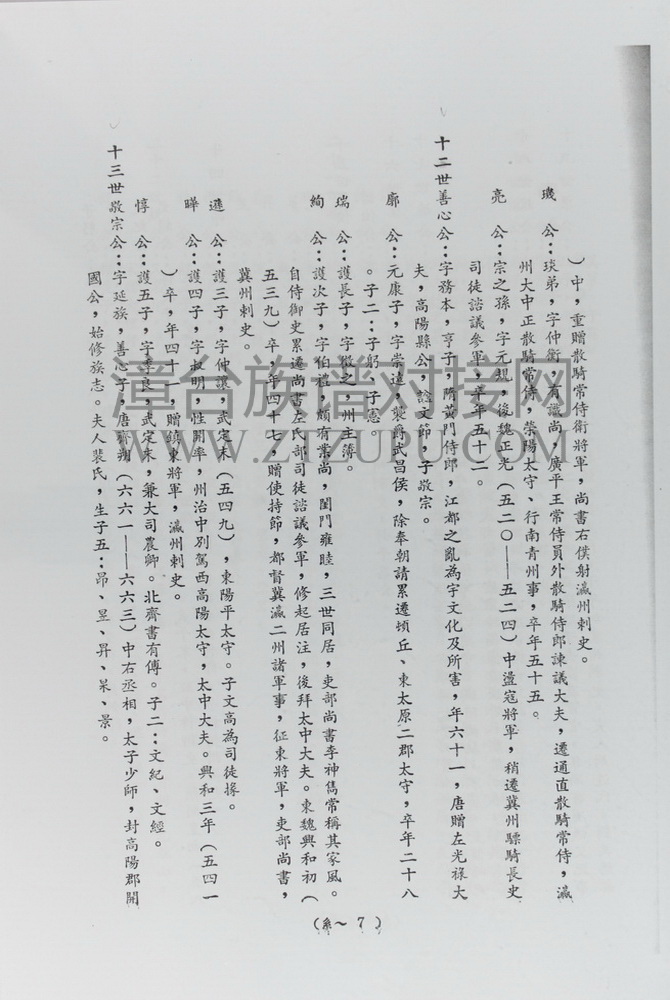 ）中，重贈散騎常侍衛將軍，尚書右僕射瀛州刺史。
璣　公：琰弟，字仲衡，有識尚，廣平王常侍員外散騎侍郎諫議大夫，遷通直散騎常侍，瀛
州大中正散騎常侍，滎陽太守、行南青州事，卒年五十五。
亮　公：宗之孫，字元規，後魏正光（五二〇——五二四）中盪寇將軍，稍遷冀州驃騎長史
司徒諮議參軍，卒年五十二。
十二世善心公：字務本，亨子，隋黃門侍郎，江都之亂為宇文化及所害，年六十一，唐贈左光祿大
夫，高陽縣公，諡文節，子敬宗。
廓　公：元康子，字崇遠，襲爵武昌侯，除奉朝請累遷頓丘、東太原二郡太守，卒年二十八
。子二：子躬、子憲。
瑞　公：護長子，字徵之，州主簿。
絢　公：護次子，字伯禮，頗有業尚，閨門雍睦，三世同居，吏部尚書李神雋常稱其家風。
自侍御史累遷尚書左民部司徒諮議參軍，修起居注，後拜太中大夫。東魏興和初（
五三九）卒，年四十七，贈使持節，都督冀瀛二州諸軍事，征東將軍，吏部尚書，
冀州刺史。
遜　公：護三子，字仲讓，武定末（五四九），東陽平太守。子文高為司徒掾。
曄　公：護四子，字叔明，性開率，州治中別駕西高陽太守，太中大夫。興和三年（五四一
）卒，年四十一，贈鎮東將軍，瀛州刺史。
惇　公：護五子，字季良，武定末，兼大司農卿。北齊書有傳。子二：文紀、文經。
十三世敬宗公：字延族，善心子，唐龍朔（六六一——六六三）中右丞相，太子少師，封高陽郡開
國公，始修族志。夫人裴氏，生子五：昂、昱、昇、杲、景。
(系～7)
漳台族譜对接网
WWW.ZTZUPU.COM